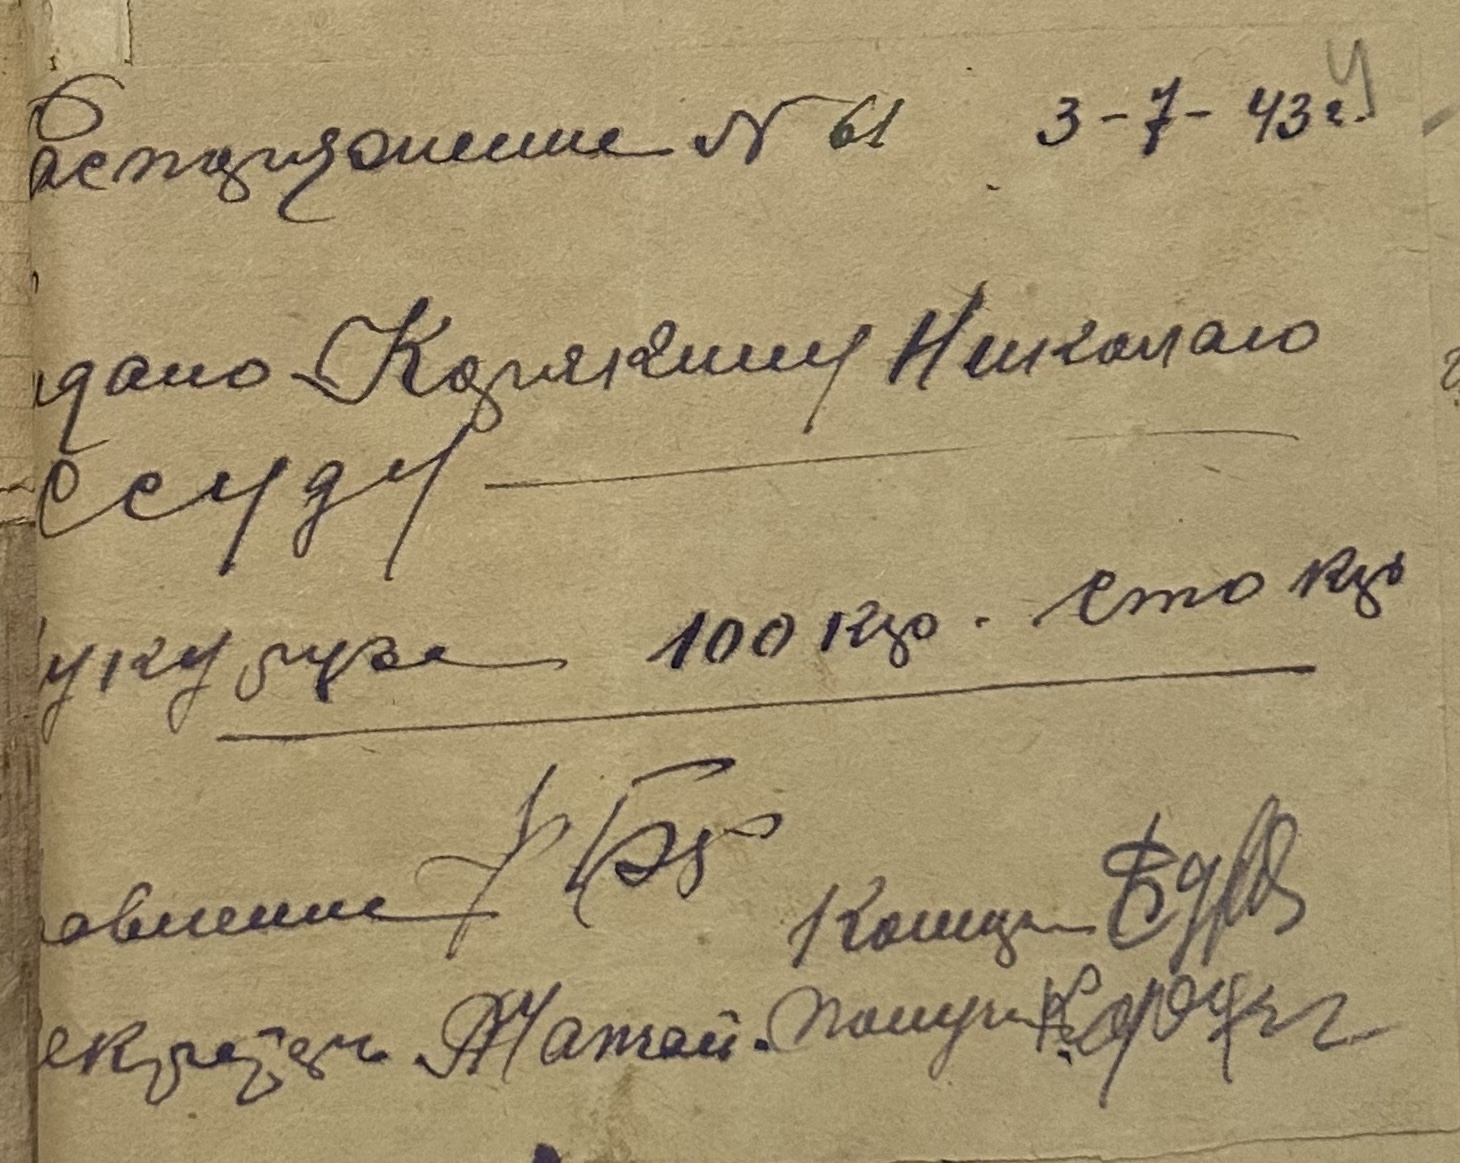 Распоряжение N 61 3-7-43г.
дано Корякину Николаю
Ссуду
укуруза 100 кгр. сто кгр
авление
екретарь Получ